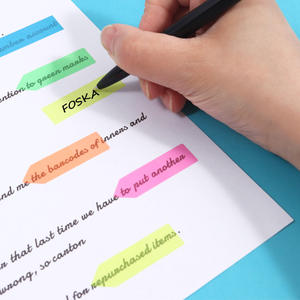 mber account
ntion to green marks
FOSKA
nd me the barcodes of inners and
r that last time we have to put another
wrong, so carton
d for repurchased items.